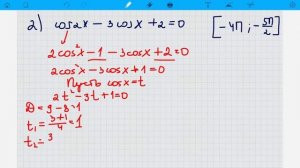 2) cos2x - 3cosx + 2 = 0 [-4π; -5π/2]
2cos²x - 1 - 3cosx + 2 = 0
2cos²x - 3cosx + 1 = 0
Пусть cosx = t
2t² - 3t + 1 = 0
D = 9 - 8 = 1
t₁ = 3+1/4 = 1
t₂ = 3